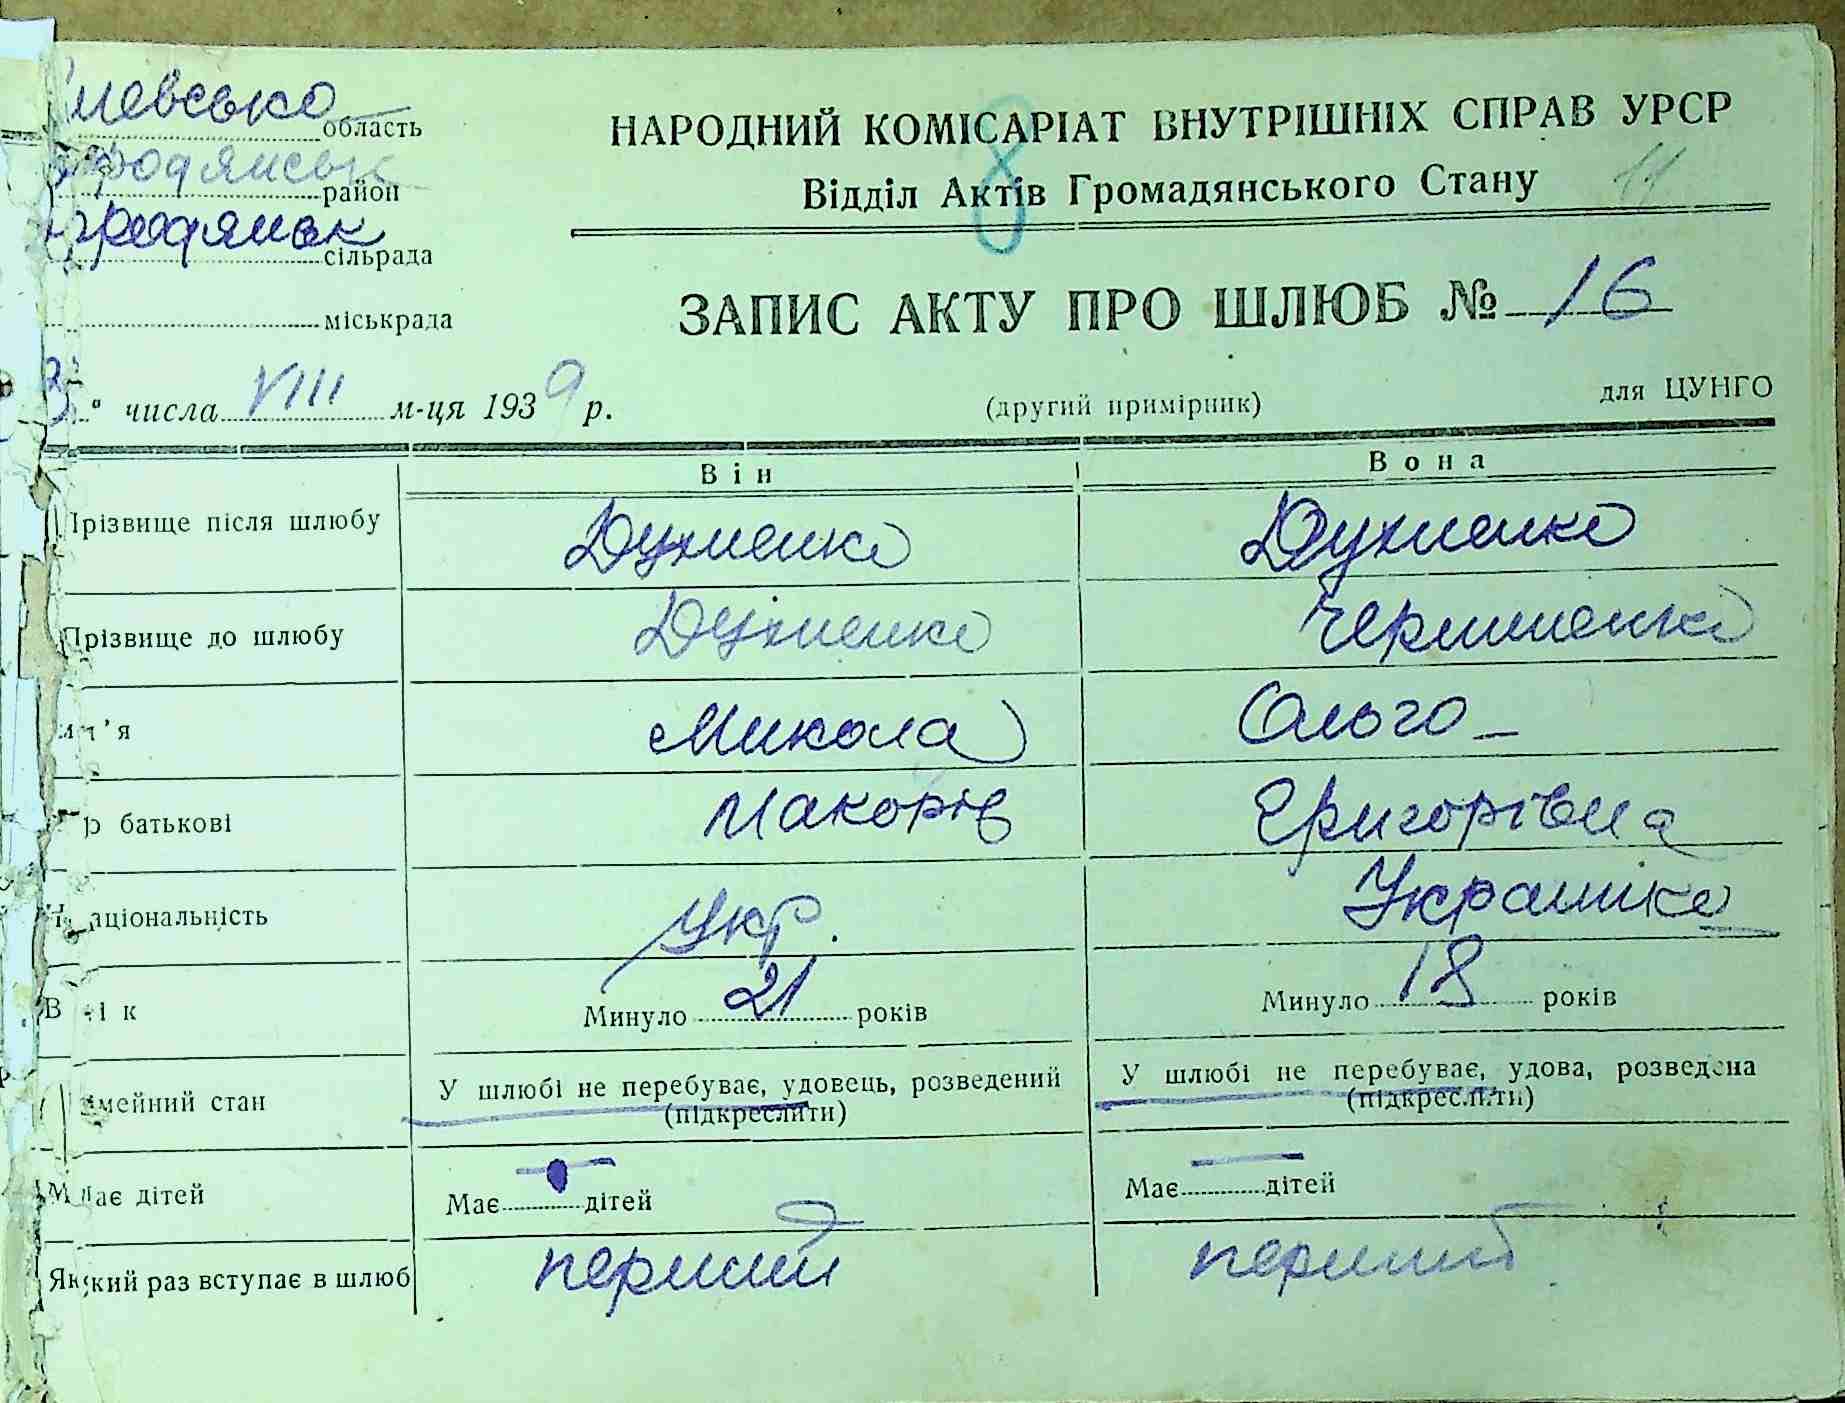 иевсько область
родянськ район
родянськ сільрада
міськрада
НАРОДНИЙ КОМІСАРІАТ ВНУТРІШНІХ СПРАВ УРСР
Відділ Актів Громадянського Стану
8
11
ЗАПИС АКТУ ПРО ШЛЮБ № 16
числа VIII м-ця 1939 р.
(другий примірник)
для ЦУНГО
Він Вона
Прізвище після шлюбу Духненко Духненко
Прізвище до шлюбу Духненко
м'я Микола Ольго
батькові Макорів Григорівна
Національність Укр. Українка
Вік Минуло 21 років Минуло 18 років
імейний стан У шлюбі не перебуває, удовець, розведений У шлюбі не перебуває, удова, розведена
(підкреслити) (підкреслити)
Має дітей Має дітей Має дітей
Який раз вступає в шлюб перший перший